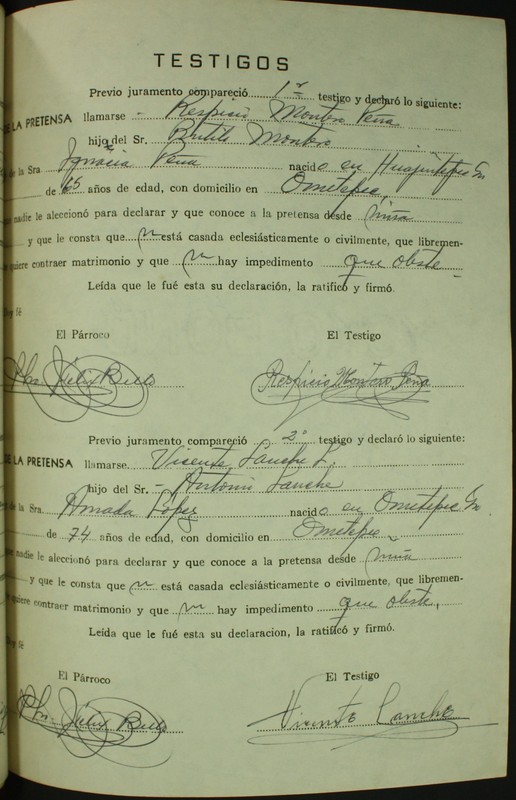 TESTIGOS
Previo juramento compareció 1er testigo y declaró lo siguiente:
DE LA PRETENSA llamarse - Respicio Montero Peña
hijo del Sr. Montero
de la Sra. Ignacia Peña nacido en Huajintepec Gro
de 65 años de edad, con domicilio en Ometepec,
nadie le aleccionó para declarar y que conoce a la pretensa desde niña
y que le consta que no está casada eclesiásticamente o civilmente, que libremen-
quiere contraer matrimonio y que no hay impedimento que obste-
Leída que le fué esta su declaración, la ratificó y firmó.
fé
El Párroco El Testigo
Pbro. Félix Bello Respicio Montero Peña
Previo juramento compareció 2o testigo y declaró lo siguiente:
DE LA PRETENSA llamarse Vicente Lanche L.
hijo del Sr. - Antonio Lanche
de la Sra. Amada López nacido en Ometepec Gro.
de 74 años de edad, con domicilio en Ometepec
nadie le aleccionó para declarar y que conoce a la pretensa desde niña
y que le consta que no está casada eclesiásticamente o civilmente, que libremen-
quiere contraer matrimonio y que no hay impedimento que obste,
Leída que le fué esta su declaracion, la ratificó y firmó.
fé
El Párroco El Testigo
Pbro. Félix Bello Vicente Lanche